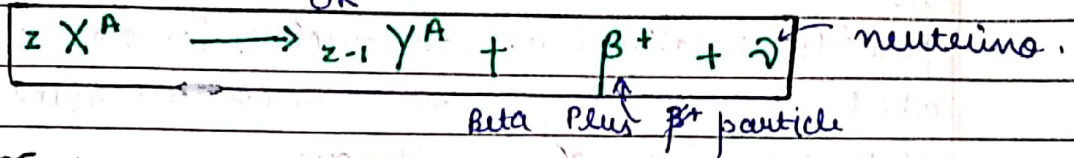 OR
zXᴬ ⟶ z-1Yᴬ + β⁺ + ν neuterino.
Beta Plus β⁺ particle